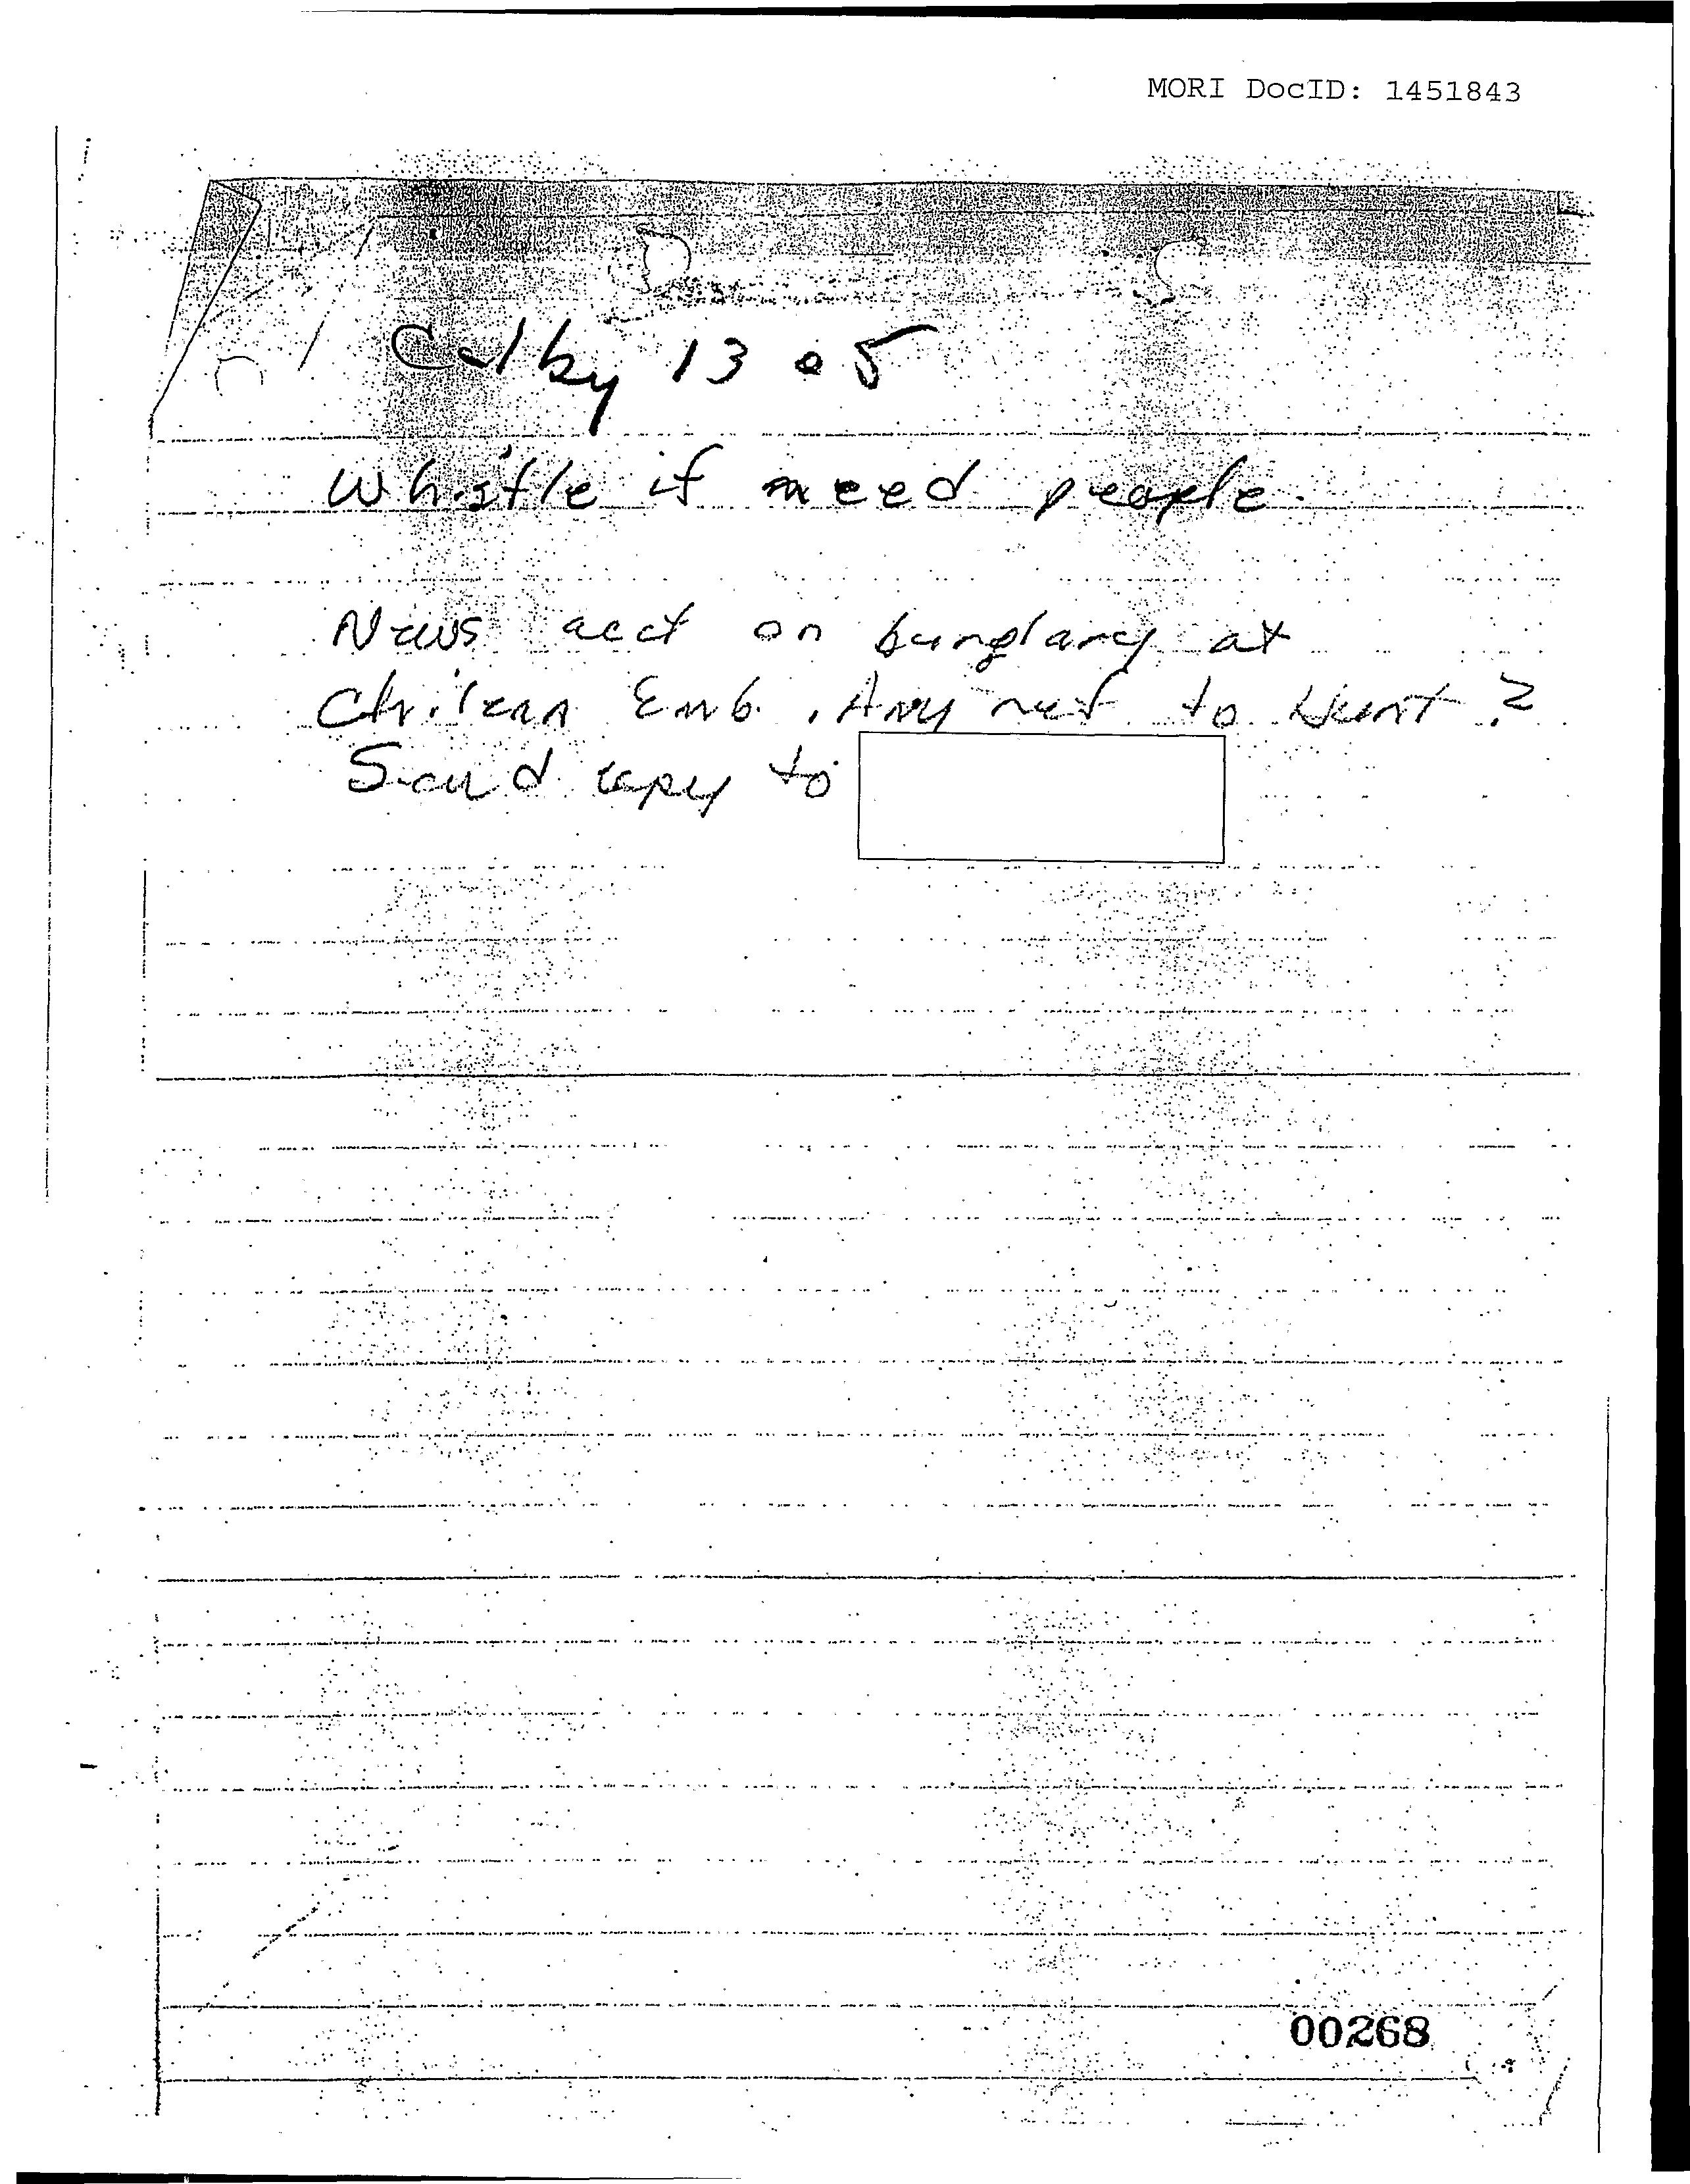 MORI DocID: 1451843
Colby 1305
Whistle if need people.
News acct on burglary at
Chilean Emb. Any ref to Hunt?
Send copy to
00268